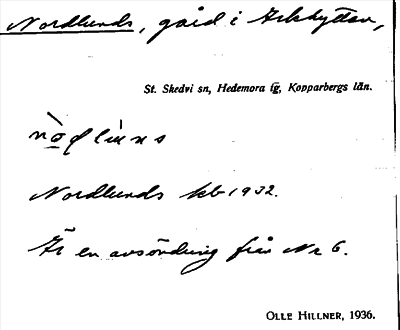 Nordlunds, gård i Arkhyttan,
St. Skedvi sn, Hedemora fg, Kopparbergs län.
Nordlunds kb 1932.
Är en avsöndring från Nr 6.
OLLE HILLNER, 1936.